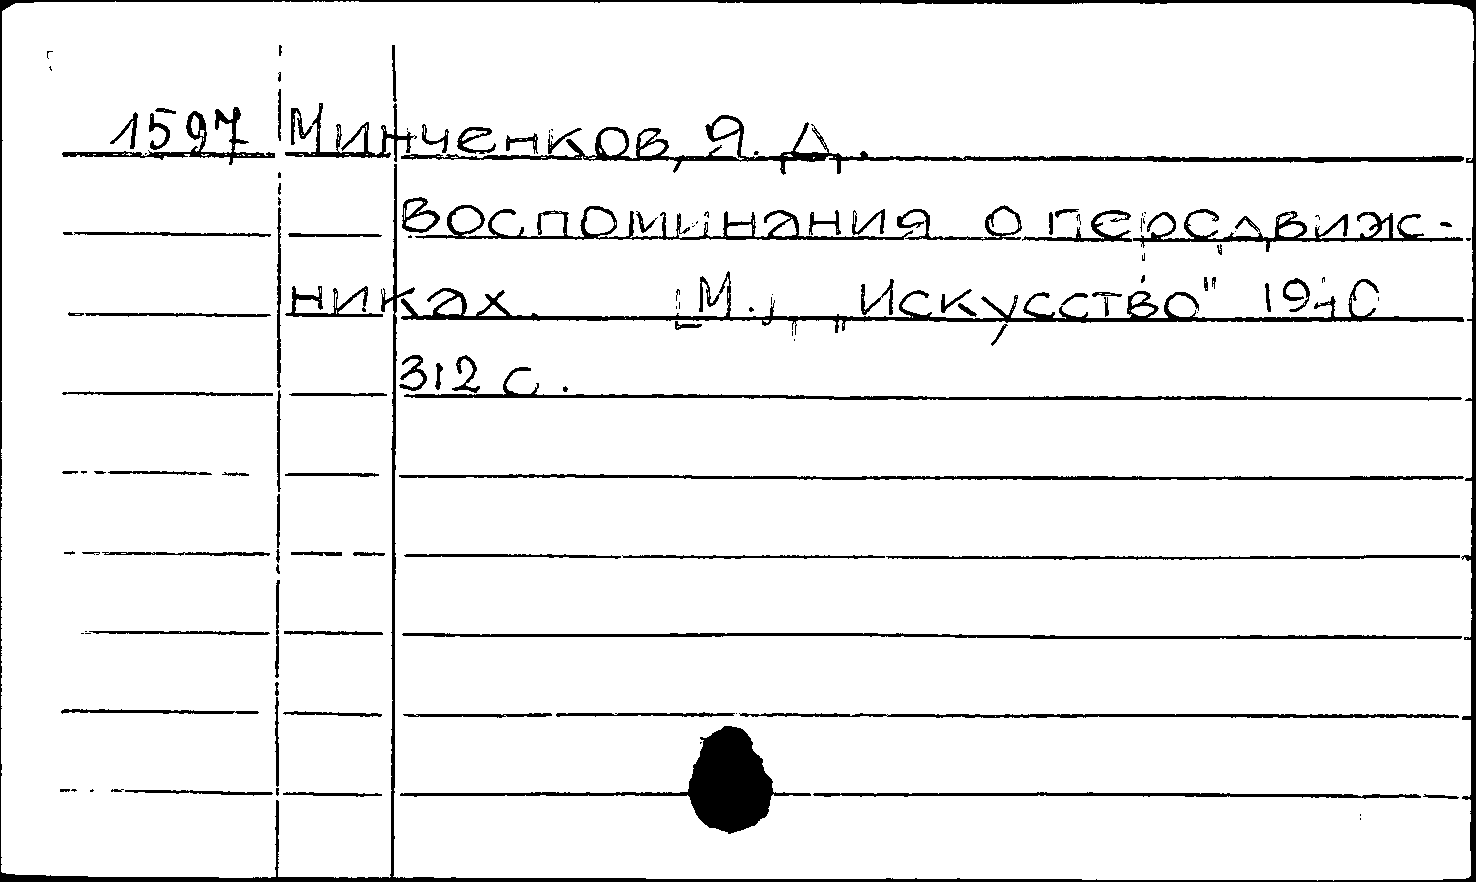 1597 Минченков, Я. Д.
воспоминания о передвиж-
никах. М., „Искусство" 1940
312 с.